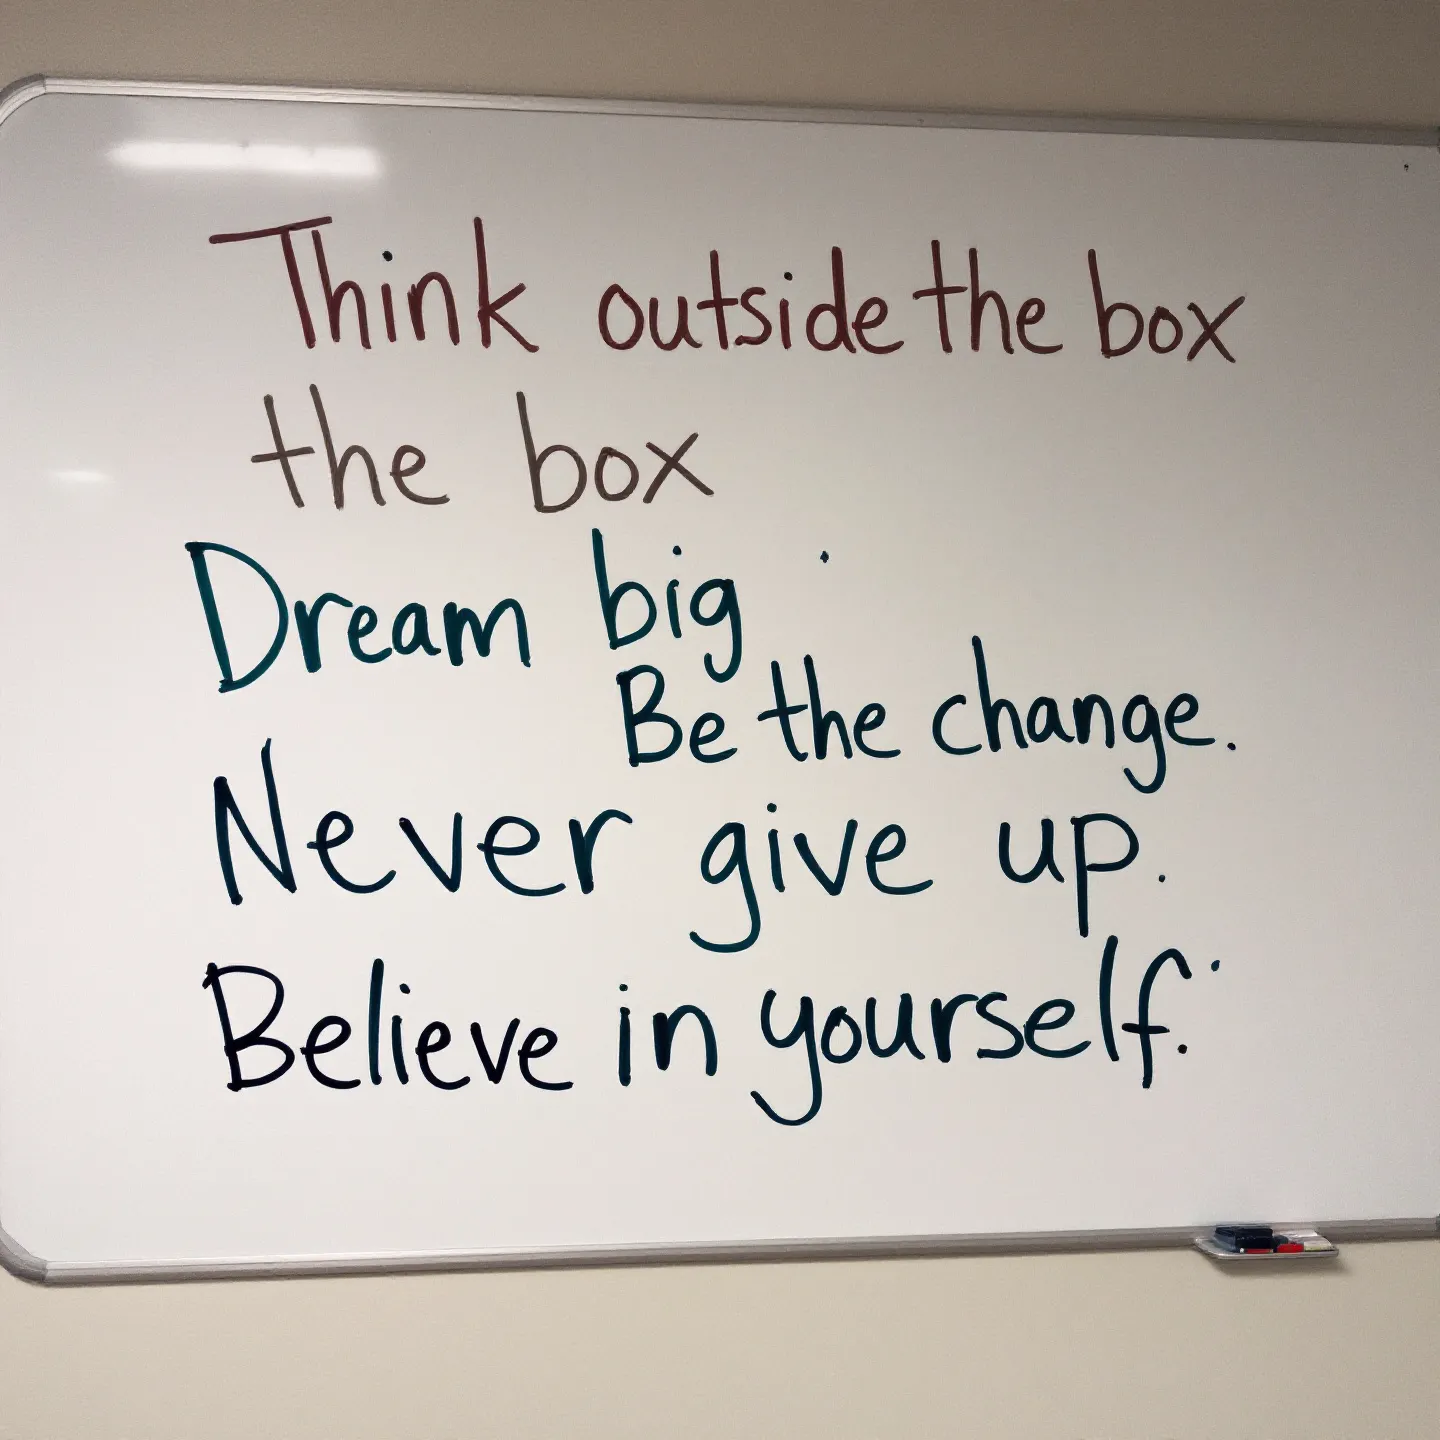 Think outside the box
the box
Dream big
Be the change.
Never give up.
Believe in yourself.